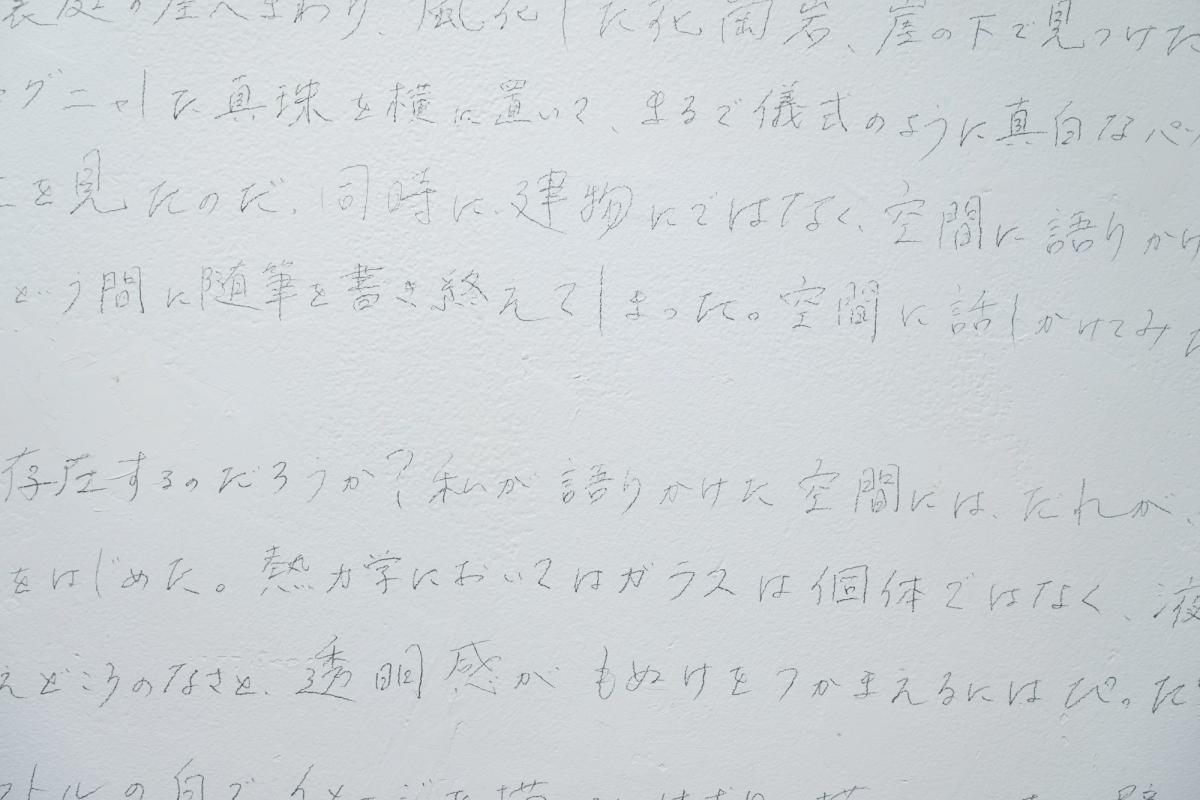 の崖へまわり、風化した花崗岩、崖の下で見つけた
グニャした真珠を横に置いて、まるで儀式のように真白なパ
を見たのだ、同時に、建物にではなく、空間に語りかけ
という間に随筆を書き終えてしまった。空間に話しかけてみた
存在するのだろうか?私が語りかけた空間には、だれが、
をはじめた。熱力学においてはガラスは個体ではなく、液
えどころのなさと、透明感がもぬけをつかまえるにはぴ。だ
トルの